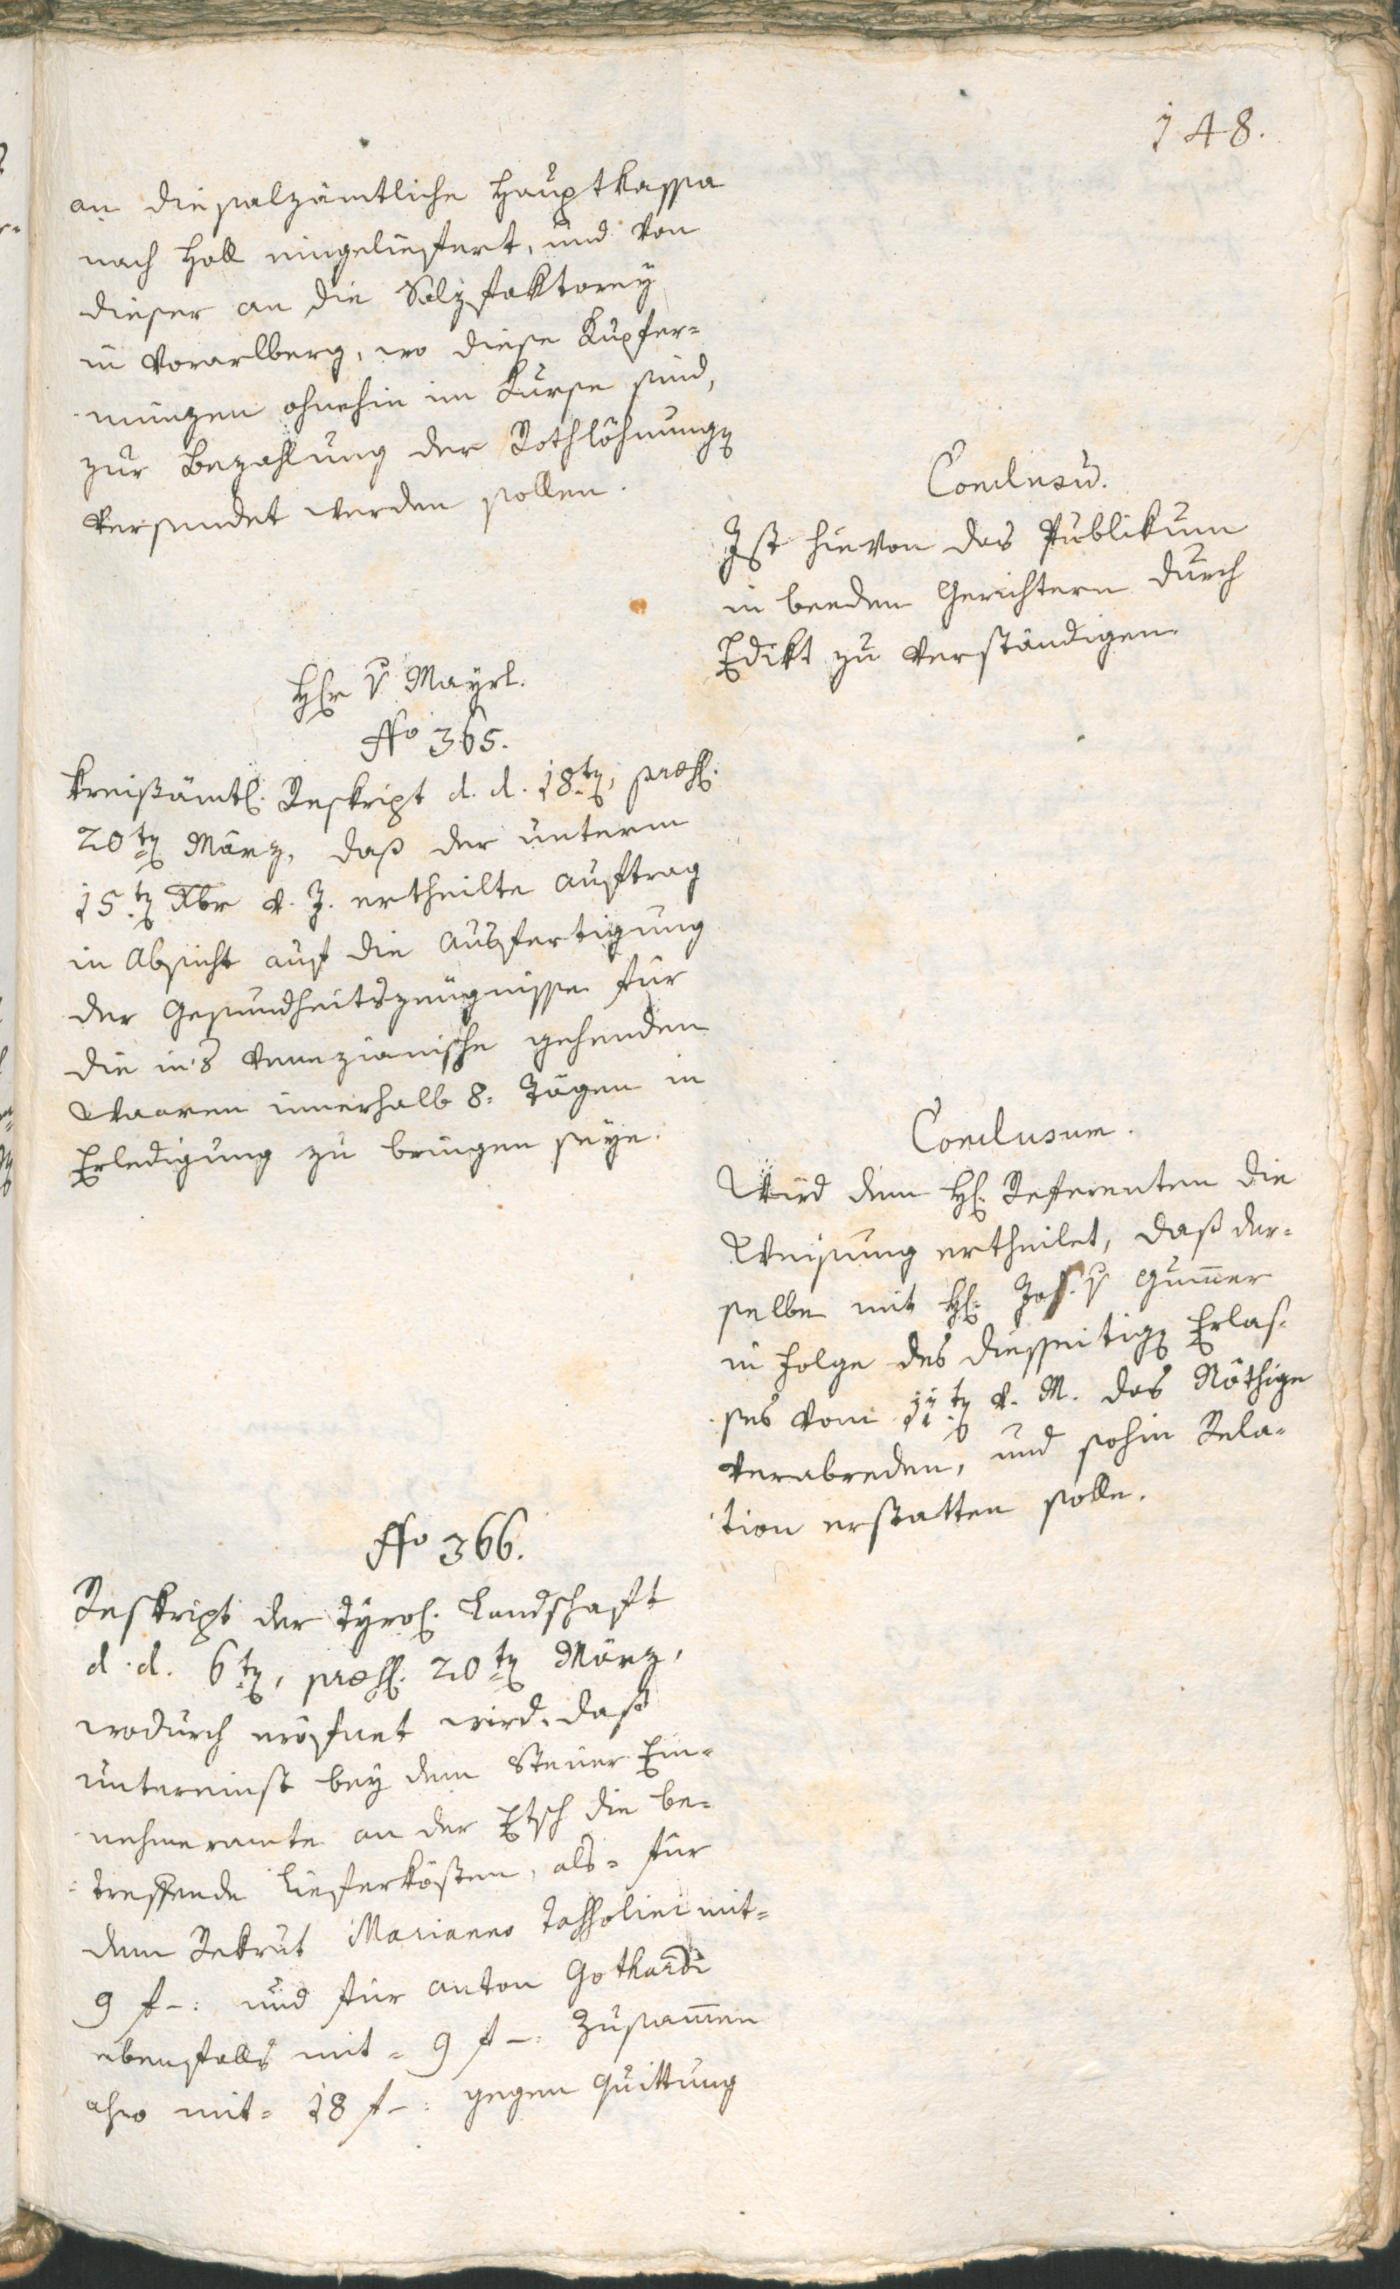 148.
an die salzämtliche Hauptkassa
nach Hall eingeliefert, und von
dieser an die Salzfaktorey
in Vorarlberg, wo diese Kupfer=
münzen ohnehin im Kurse sind,
zur Bezahlung der Rothlöhnung
versendet werden sollen.
Conclusu.
Ist hievon das Publikum
in beeden Gerichtern durch
Edikt zu verständigen.
H v Mayrl.
No 365.
Kreißämtl. Reskript d. d. 18ten, præs.
20ten März, daß der unterm
15ten Xbr v. J. ertheilte Auftrag
in Absicht auf die Ausfertigung
der Gesundheitszeugnisse für
die in's Venezianische gehenden
Waaren innerhalb 8. Tägen in
Erledigung zu bringen seye.
Conclusum.
Wird dem H. Referenten die
Weisung ertheilet, daß der=
selbe mit H. Jos. v Gum̄er
in Folge des diesseitigen Erlas=
ses vom 11ten v. M. das Nöthige
verabreden, und sohin Rela=
tion erstatten solle.
No 366.
Reskript der Tyrol. Landschaft
d. d. 6ten, præs. 20ten März,
wodurch eröfnet wird, daß
untereinst bey dem Steuer Ein=
nehmeramte an der Etsch die be=
treffende Lieferkösten, als= für
dem Rekrut Marianno mit=
9 f –: und für Anton Gothardi
ebenfalls mit= 9 f –: zusam̄en
also mit= 18 f –: gegen Quittung